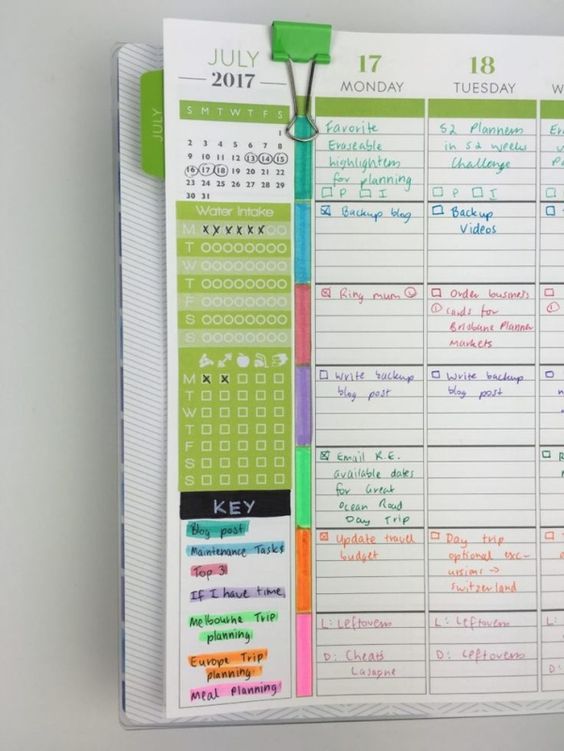 JULY
2017
S M T W T F S
1
2 3 4 5 6 7 8
9 10 11 12 13 14 15
16 17 18 19 20 21 22
23 24 25 26 27 28 29
30 31
JULY
Water Intake
M x x x x x x
T
W
T
F
S
S
M x x
T
W
T
F
S
S
KEY
Blog post
Maintenance Tasks
Top 3
If I have time
Melbourne Trip
planning
Europe Trip
planning
Meal planning
17
MONDAY
Favorite
Eraseable
highlighters
for planning
P I
Backup blog
Ring mum 1
Write backup
blog post
Email K.E.
available dates
for Great
Ocean Road
Day Trip
Update travel
budget
L: Leftovers
D: Cheats
Lasagne
18
TUESDAY
52 Planners
in 52 weeks
Challenge
P I
Backup
Videos
Order business
1 cards for
Brisbane Planner
Markets
Write backup
blog post
Day trip
optional exc-
ursions →
Switzerland
L: Leftovers
D: Leftovers
W
L:
D: